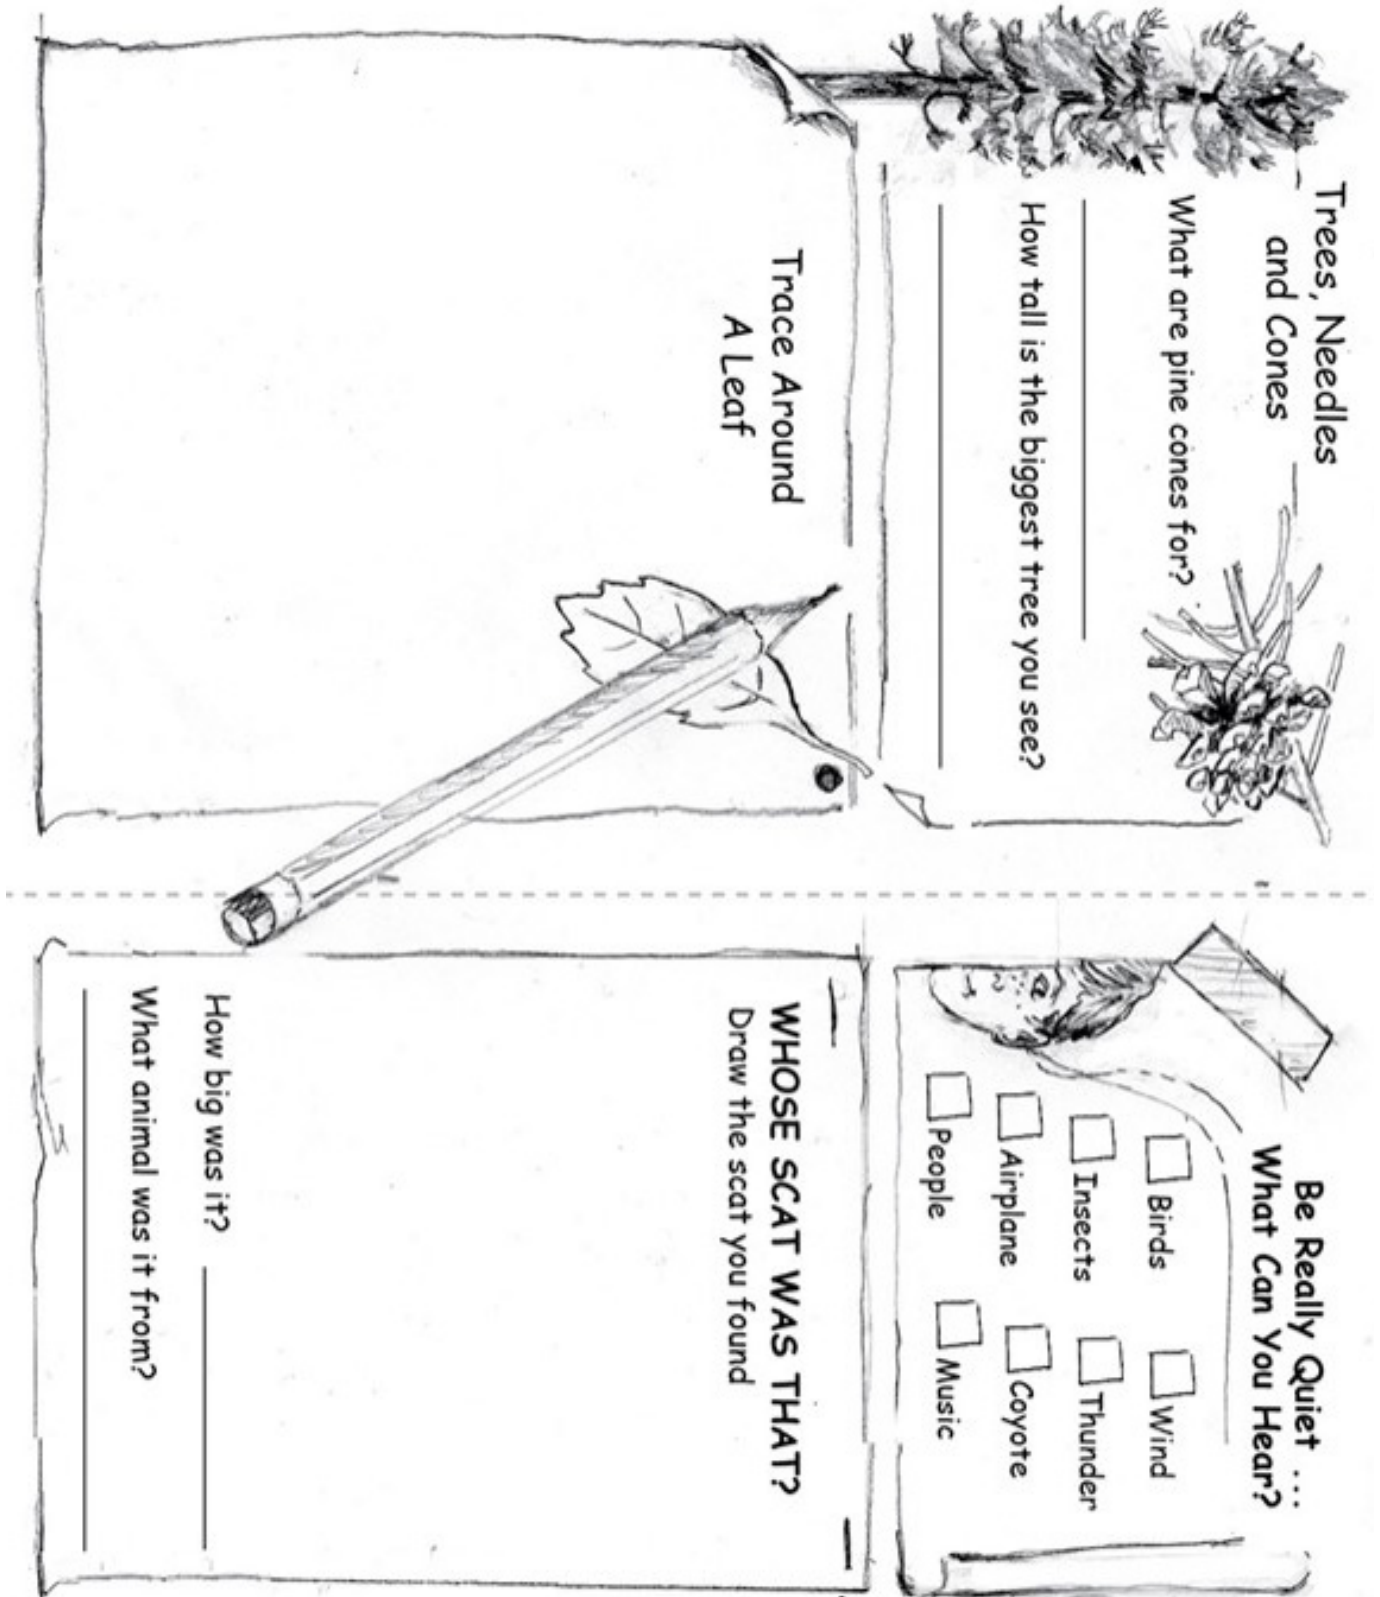 Trees, Needles
and Cones
What are pine cones for?
How tall is the biggest tree you see?
Trace Around
A Leaf
Be Really Quiet ....
What Can You Hear?
Birds
Wind
Insects
Thunder
Airplane
Coyote
People
Music
WHOSE SCAT WAS THAT?
Draw the scat you found
How big was it?
What animal was it from?